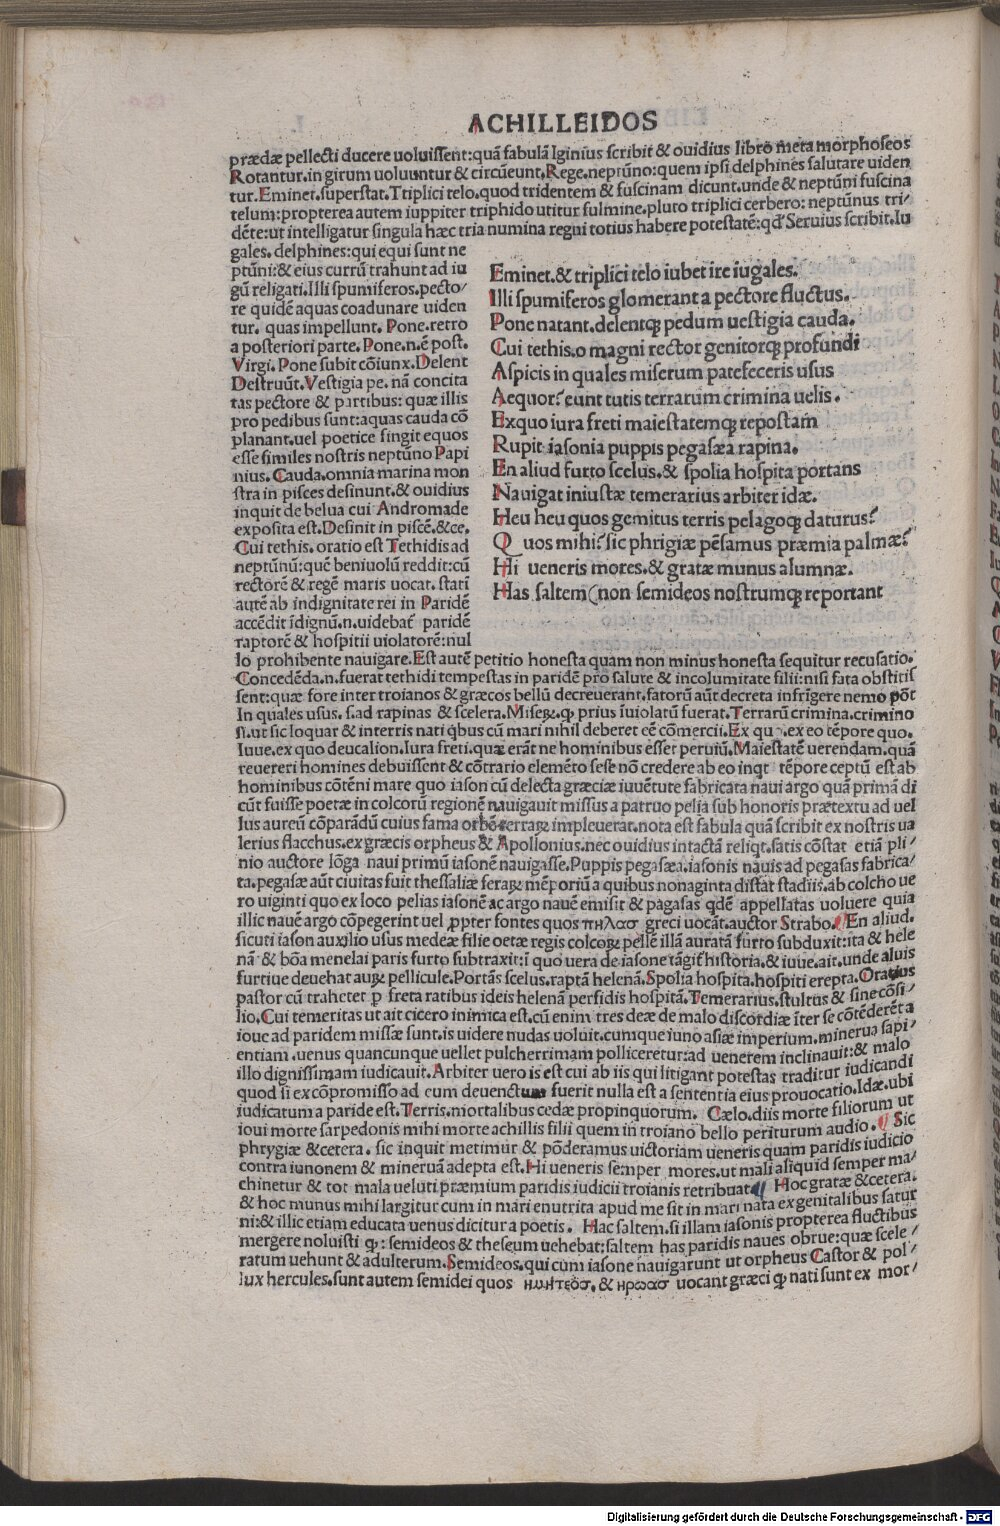 ACHILLEIDOS
prædæ pellecti ducere uoluissent:quã fabulã Iginius scribit & ouidius libro metamorphoseos
Rotantur.in girum uoluuntur & circũeunt.Rege.neptũno:quem ipsi delphines salutare uiden
tur.Eminet.superstat.Triplici telo.quod tridentem & fuscinam dicunt.unde & neptũni fuscina
telum:propterea autem iuppiter triphido utitur fulmine.pluto triplici cerbero: neptũnus tri/
dẽte:ut intelligatur singula hæc tria numina regni totius habere potestatẽ:qđ Seruius scribit.Iu
gales. delphines:qui equi sunt ne
ptũni:& eius currũ trahunt ad iu
gũ religati.Illi spumiferos.pecto/
re quidẽ aquas coadunare uiden
tur. quas impellunt. Pone.retro
a posteriori parte. Pone.n.ẽ post.
Virgi. Pone subit cõiunx.Delent
Destruũt.Vestigia pe. nã concita
tas pectore & partibus: quæ illis
pro pedibus sunt:aquas cauda cõ
planant.uel poetice fingit equos
esse similes nostris neptũno Papi
nius. Cauda.omnia marina mon
stra in pisces desinunt.& ouidius
inquit de belua cui Andromade
exposita est.Desinit in piscẽ.&ce.
Cui tethis.oratio est Tethidis ad
neptũnũ:quẽ beniuolũ reddit:cũ
rectorẽ & regẽ maris uocat. statĩ
autẽ ab indignitate rei in Paridẽ
accẽdit ĩdignũ.n.uidebat̃ paridẽ
raptorẽ & hospitii uiolatorẽ:nul
Eminet.& triplici telo iubet ire iugales.
Illi spumiferos glomerant a pectore fluctus.
Pone natant.delentꝗ pedum uestigia cauda.
Cui tethis.o magni rector genitorꝗ profundi
Aspicis in quales miserum patefeceris usus
Aequor?eunt tutis terrarum crimina uelis.
Exquo iura freti maiestatemꝗ repostam
Rupit iasonia puppis pegasæa rapina.
En aliud furto scelus.& spolia hospita portans
Nauigat iniustæ temerarius arbiter idæ.
Heu heu quos gemitus terris pelagoꝗ daturus?
Quos mihi?sic phrigiæ pẽsamus præmia palmæ?
Hi ueneris mores.& gratæ munus alumnæ.
Has saltem(non semideos nostrumꝗ reportant
lo prohibente nauigare.Est autẽ petitio honesta quam non minus honesta sequitur recusatio.
Concedẽda.n.fuerat tethidi tempestas in paridẽ pro salute & incolumitate filii:nisi fata obstitis
sent:quæ fore inter troianos & græcos bellũ decreuerant.fatorũ aũt decreta infrĩgere nemo põt
In quales usus. s.ad rapinas & scelera.Miseꝝ.ꝙ prius ĩuiolatũ fuerat.Terrarũ crimina.crimino
si.ut sic loquar & interris nati qbus cũ mari nihil deberet eẽ cõmercii.Ex quo.ex eo tẽpore quo.
Iuue.ex quo deucalion.Iura freti.quæ erãt ne hominibus esset peruiũ.Maiestatẽ uerendam.quã
reuereri homines debuissent & cõtrario elemẽto sese nõ credere ab eo inqt tẽpore ceptũ est ab
hominibus cõtẽni mare quo iason cũ delecta græciæ iuuẽtute fabricata naui argo quã primã di
cũt fuisse poetæ in colcorũ regionẽ nauigauit missus a patruo pelia sub honoris prætextu ad uel
lus aureũ cõparãdũ cuius fama orbẽ terraꝝ impleuerat.nota est fabula quã scribit ex nostris ua
lerius flacchus.ex græcis orpheus & Apollonius.nec ouidius intactã reliqt.satis cõstat etiã pli/
nio auctore lõga naui primũ iasonẽ nauigasse.Puppis pegasæa.iasonis nauis ad pegasas fabrica/
ta.pegasæ aũt ciuitas fuit thessaliæ feraꝝ mẽporiũ a quibus nonaginta distat stadiis.ab colcho ue
ro uiginti quo ex loco pelias iasonẽ ac argo nauẽ emisit & pagasas qdẽ appellatas uoluere quia
illic nauẽ argo cõpegerint uel ꝓpter fontes quos πηλασ greci uocãt.auctor Strabo. En aliud.
sicuti iason auxilio usus medeæ filie oetæ regis colcoꝝ pellẽ illã auratã furto subduxit:ita & hele
nã & bõa menelai paris furto subtraxit:ĩ quo uera de iasone tãgit̃ historia.& iuue.ait.unde aluis
furtiue deuehat auꝝ pellicule.Portãs scelus.raptã helenã.Spolia hospita.hospiti erepta.Oratius
pastor cũ traheret ꝑ freta ratibus ideis helenã perfidis hospitã.Temerarius.stultus & sine cõsi/
lio.Cui temeritas ut ait cicero inimica est.cũ enim tres deæ de malo discordiæ ĩter se cõtẽderẽt a
ioue ad paridem missæ sunt.is uidere nudas uoluit.cumque iuno asiæ imperium.minerua sapi/
entiam.uenus quancunque uellet pulcherrimam polliceretur:ad uenerem inclinauit:& malo
illo dignissimam iudicauit.Arbiter uero is est cui ab iis qui litigant potestas traditur iudicandi
quod si ex cõpromisso ad eum deuenctum fuerit nulla est a sententia eius prouocatio.Idæ.ubi
iudicatum a paride est.Terris.mortalibus cedæ propinquorum. Cælo.diis morte filiorum ut
ioui morte sarpedonis mihi morte achillis filii quem in troiano bello periturum audio. Sic
phrygiæ &cetera. sic inquit metimur & põderamus uictoriam ueneris quam paridis iudicio
contra iunonem & mineruã adepta est.Hi ueneris semper mores.ut mali aliquid semper ma/
chinetur & tot mala ueluti præmium paridis iudicii troianis retribuat Hoc gratæ &cetera.
& hoc munus mihi largitur cum in mari enutrita apud me sit in mari nata ex genitalibus satur
ni:& illic etiam educata uenus dicitur a poetis. Hac saltem.si illam iasonis propterea fluctibus
mergere noluisti ꝙ: semideos & theseum uehebat:saltem has paridis naues obrue:quæ scele/
ratum uehunt & adulterum.Semideos.qui cum iasone nauigarunt ut orpheus Castor & pol/
lux hercules.sunt autem semidei quos ημητεοσ. & ηρωασ uocant græci ꝙ nati sunt ex mor/
Digitalisierung gefördert durch die Deutsche Forschungsgemeinschaft - DFG